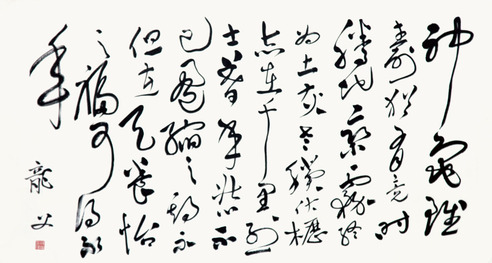 神龜雖
壽猶有竟時
騰蛇乘霧終
為土灰老驥伏櫪
志在千里烈
士暮年壯心不
已盈縮之期不
但在天養怡
之福可得永
年
龍